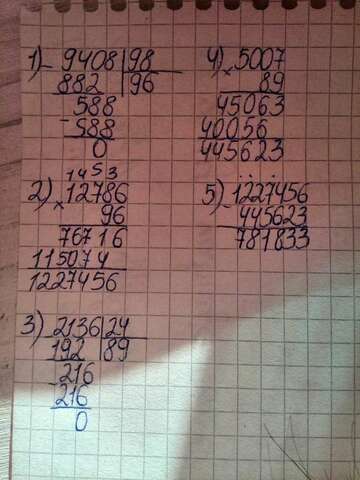 1) - 9408 | 98
882 | 96
588
- 588
0
2) 1453
× 12786
96
76716
115074
1227456
3) - 2136 | 24
192 | 89
- 216
216
0
4) × 5007
89
45063
40056
445623
5) - 1227456
445623
781833